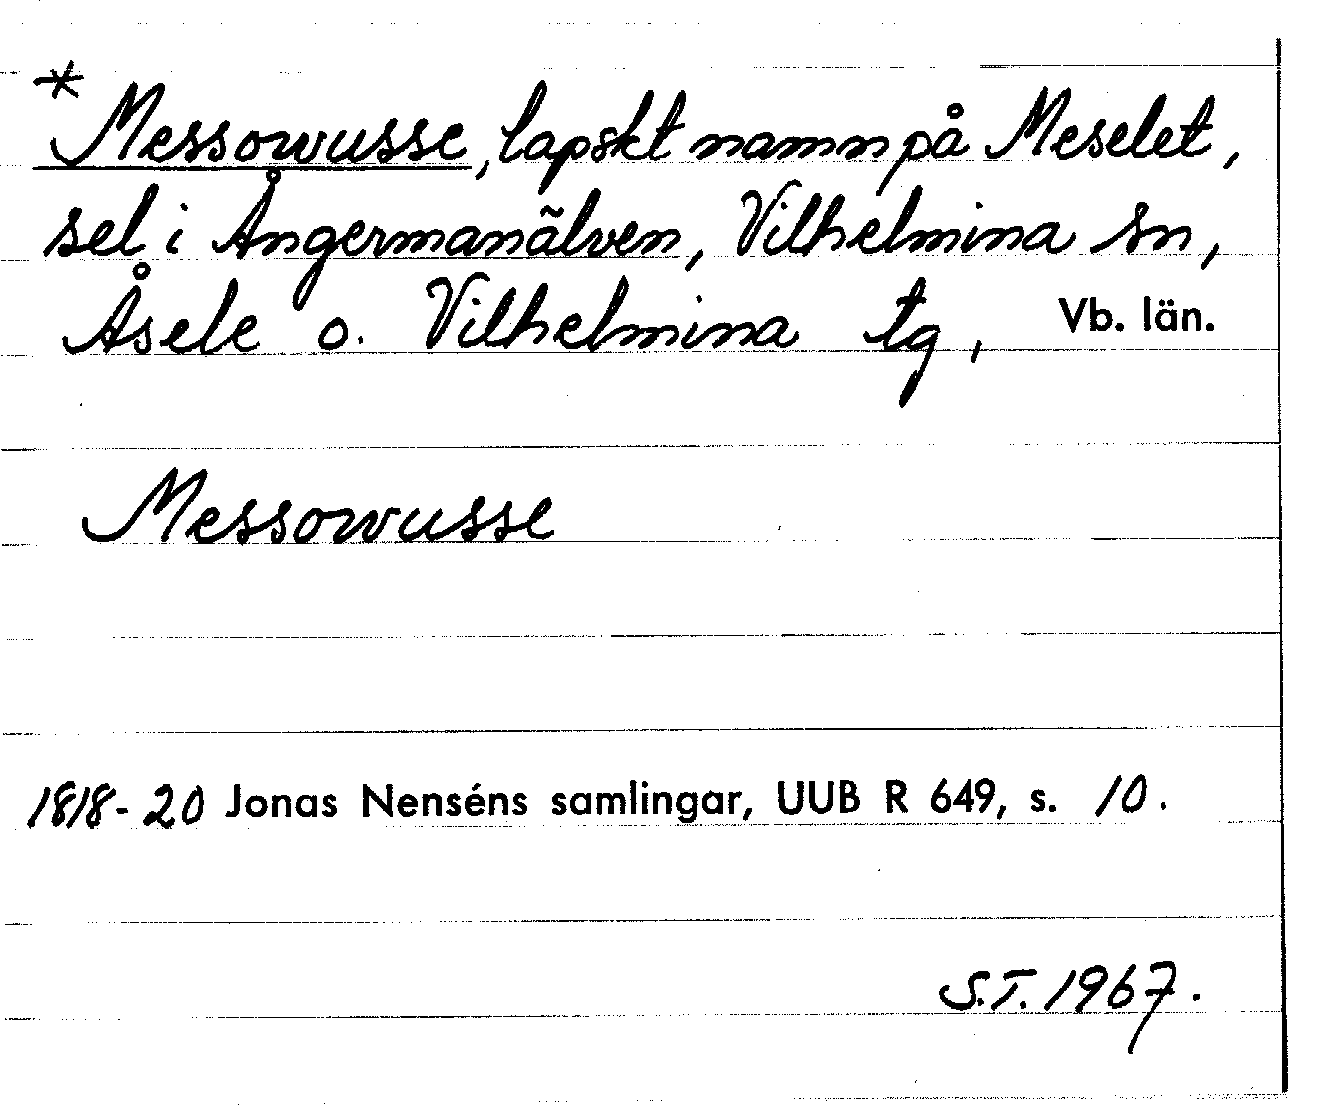 *Messowusse, lapskt namn på Meselet,
sel i Ångermanälven, Vilhelmina sn,
Åsele o. Vilhelmina tg, Vb. län.
Messowusse
1818-20 Jonas Nenséns samlingar, UUB R 649, s. 10.
S.T. 1967.